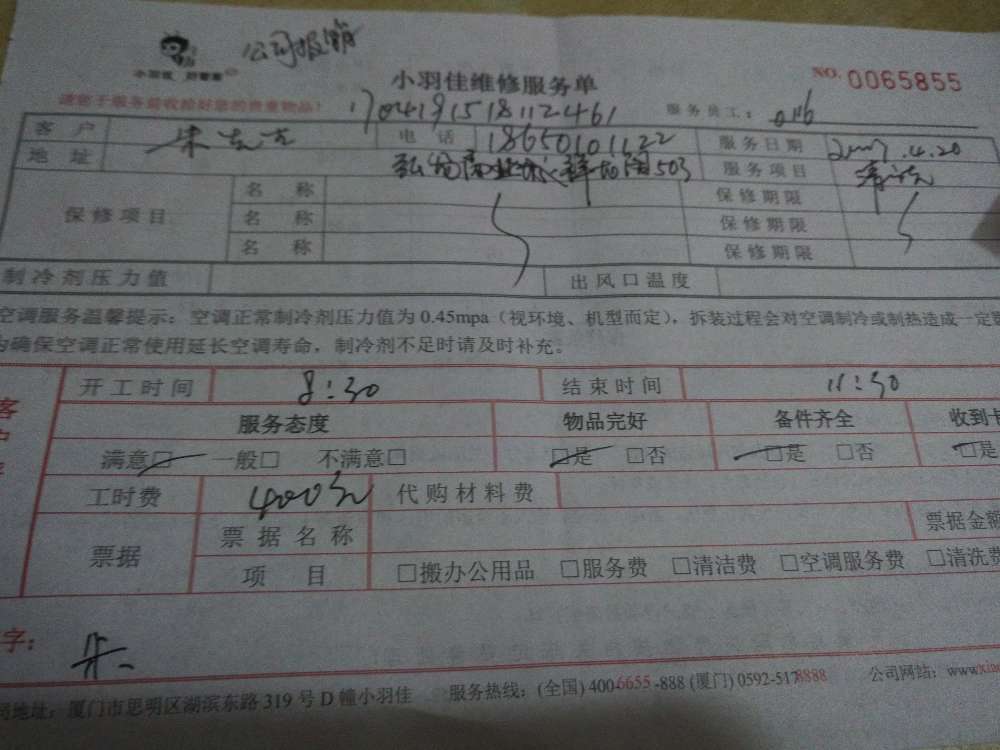 公司报销
小羽佳 好管家
小羽佳维修服务单
NO. 0065855
请您于服务前收拾好您的贵重物品!
1704191518112461
服务员工: 016
客户 电话 18650101122 服务日期 2017.4.20
地址 503 服务项目
保修项目 名称 保修期限
名称 保修期限
名称 保修期限
制冷剂压力值 出风口温度
空调服务温馨提示:空调正常制冷剂压力值为0.45mpa(视环境、机型而定),拆装过程会对空调制冷或制热造成一定
为确保空调正常使用延长空调寿命,制冷剂不足时请及时补充。
开工时间 8:30 结束时间 11:30
客户
服务态度 物品完好 备件齐全 收到
满意□ 一般□ 不满意□ □是 □否 □是 □否 □是
工时费 400元 代购材料费
票据 票据名称 票据金额
项目 □搬办公用品 □服务费 □清洁费 □空调服务费 □清洗费
字: 朱
司地址:厦门市思明区湖滨东路319号D幢小羽佳 服务热线:(全国)400-6655-888 (厦门)0592-5178888 公司网站:www.xia